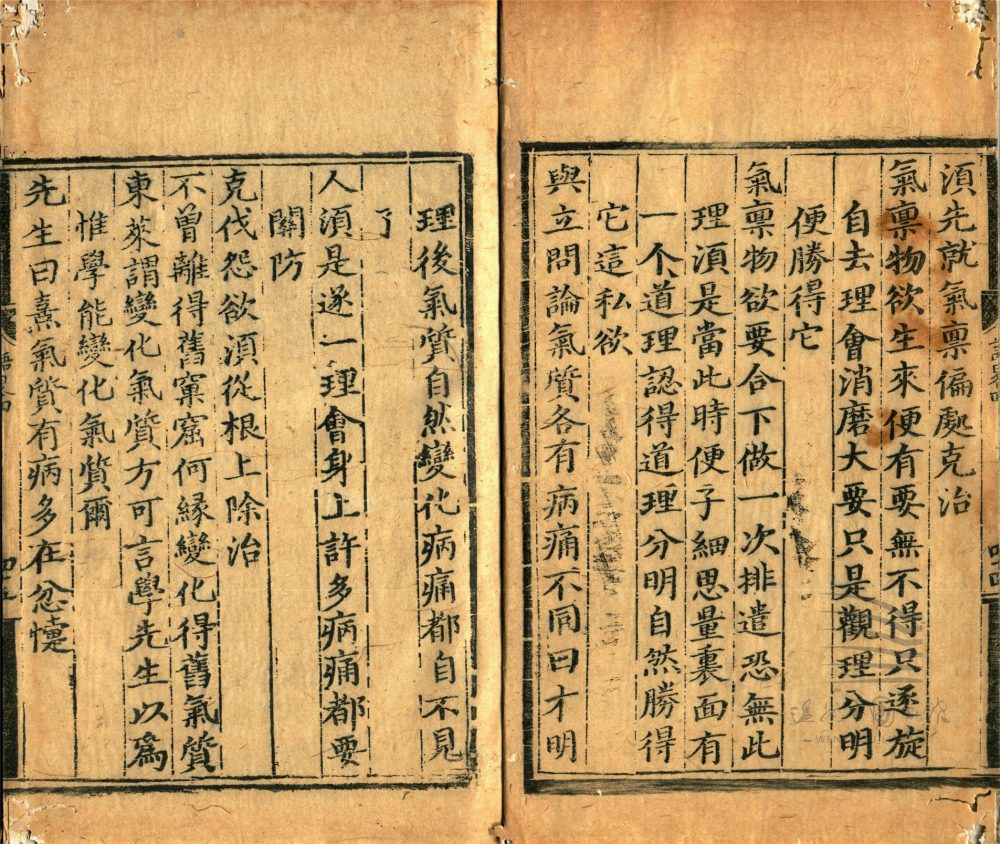 須先就氣禀偏處克治
氣禀物欲生來便有要無不得只逐旋
自去理會消磨大要只是觀理分明
便勝得它
氣禀物欲要合下做一次排遣恐無此
理須是當此時便子細思量裏面有
一个道理認得道理分明自然勝得
它這私欲
與立問論氣質各有病痛不同曰才明
理後氣質自然變化病痛都自不見
了
人須是逐一理會身上許多病痛都要
關防
克伐怨欲須從根上除治
不曾離得舊窠窟何縁變化得舊氣質
東萊謂變化氣質方可言學先生以爲
惟學能變化氣質爾
先生曰熹氣質有病多在忿懥